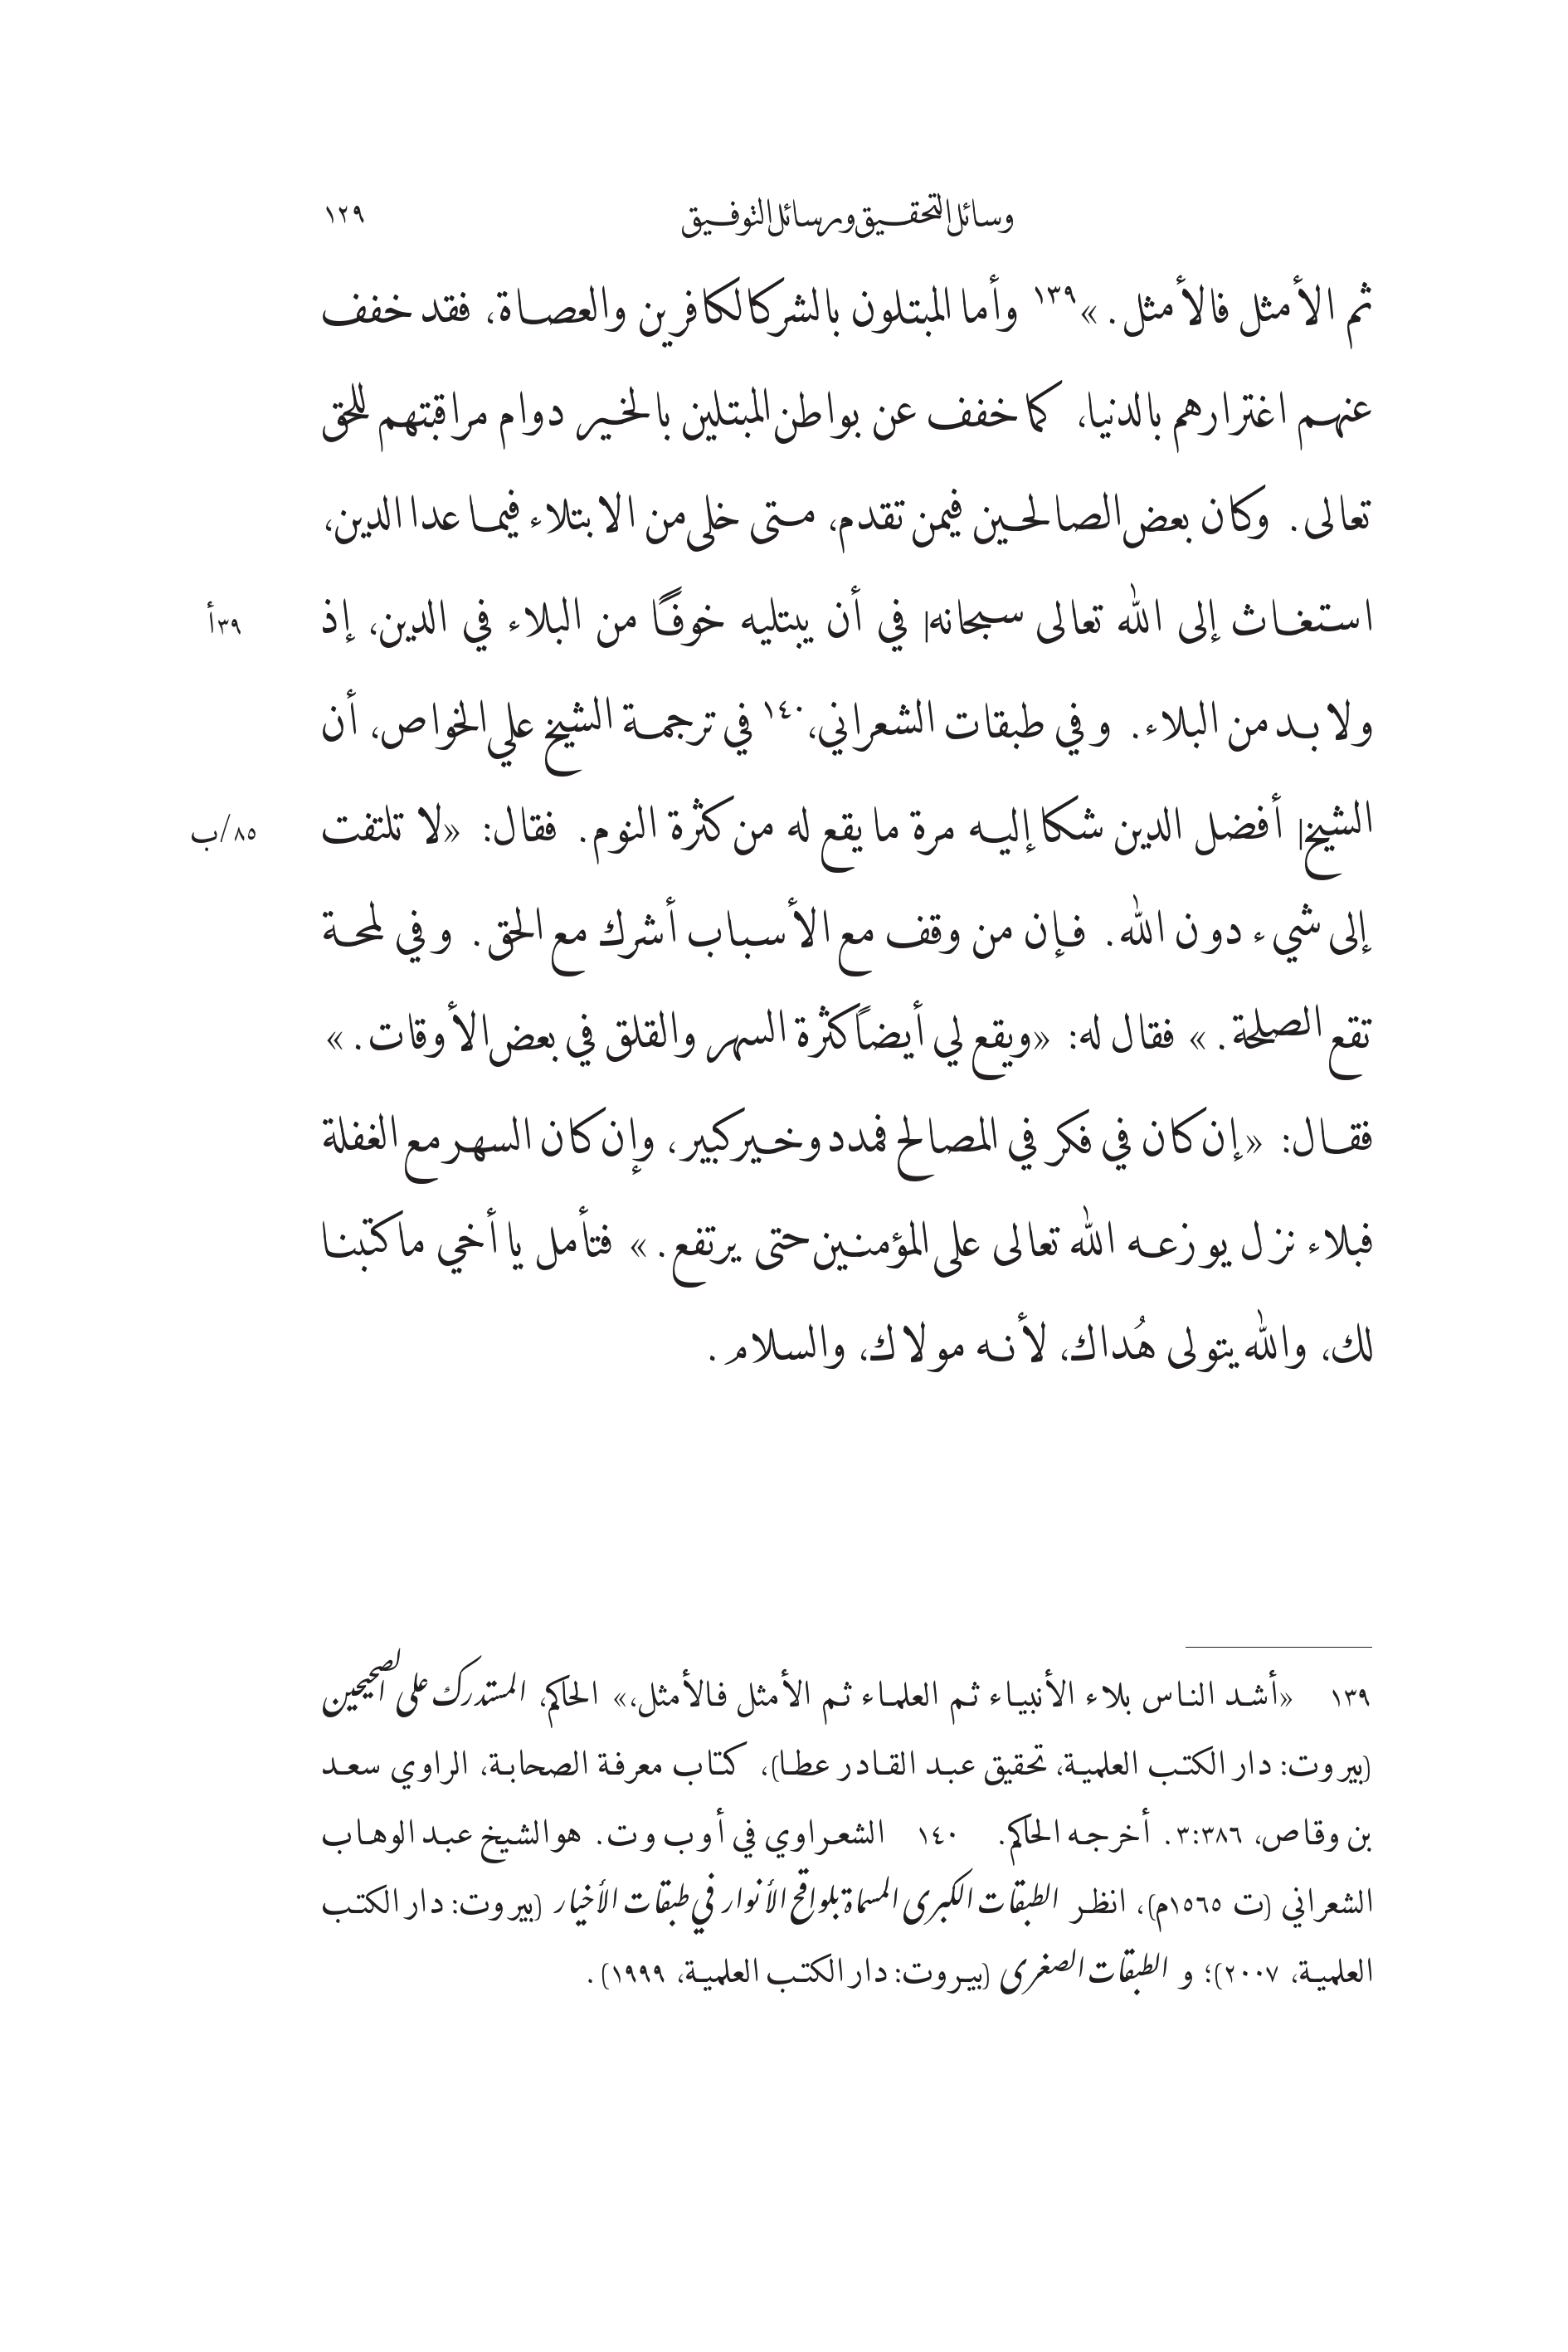 وسائل التحقيق ورسائل التوفيق ١٢٩
ثم الأمثل فالأمثل.»١٣٩ وأما المبتلون بالشر كالكافرين والعصاة، فقد خفف
عنهم اغترارهم بالدنيا، كما خفف عن بواطن المبتلين بالخير دوام مراقبتهم للحق
تعالى. وكان بعض الصالحين فيمن تقدم، متى خلى من الابتلاء فيما عدا الدين،
استغاث إلى الله تعالى سبحانه| في أن يبتليه خوفًا من البلاء في الدين، إذ ٣٩أ
ولا بد من البلاء. وفي طبقات الشعراني،١٤٠ في ترجمة الشيخ علي الخواص، أن
الشيخ| أفضل الدين شكا إليه مرة ما يقع له من كثرة النوم. فقال: «لا تلتفت ٨٥/ب
إلى شيء دون الله. فإن من وقف مع الأسباب أشرك مع الحق. وفي لمحة
تقع الصلحة.» فقال له: «ويقع لي أيضًا كثرة السهر والقلق في بعض الأوقات.»
فقال: «إن كان في فكر في المصالح فمدد وخير كبير، وإن كان السهر مع الغفلة
فبلاء نزل يوزعه الله تعالى على المؤمنين حتى يرتفع.» فتأمل يا أخي ما كتبنا
لك، والله يتولى هُداك، لأنه مولاك، والسلام.
١٣٩ «أشد الناس بلاء الأنبياء ثم العلماء ثم الأمثل فالأمثل،» الحاكم، المستدرك على الصحيحين
(بيروت: دار الكتب العلمية، تحقيق عبد القادر عطا)، كتاب معرفة الصحابة، الراوي سعد
بن وقاص، ٣:٣٨٦. أخرجه الحاكم. ١٤٠ الشعراوي في أ و ب و ت. هو الشيخ عبد الوهاب
الشعراني (ت ١٥٦٥م)، انظر الطبقات الكبرى المسماة بلواقح الأنوار في طبقات الأخيار (بيروت: دار الكتب
العلمية، ٢٠٠٧)؛ و الطبقات الصغرى (بيروت: دار الكتب العلمية، ١٩٩٩).